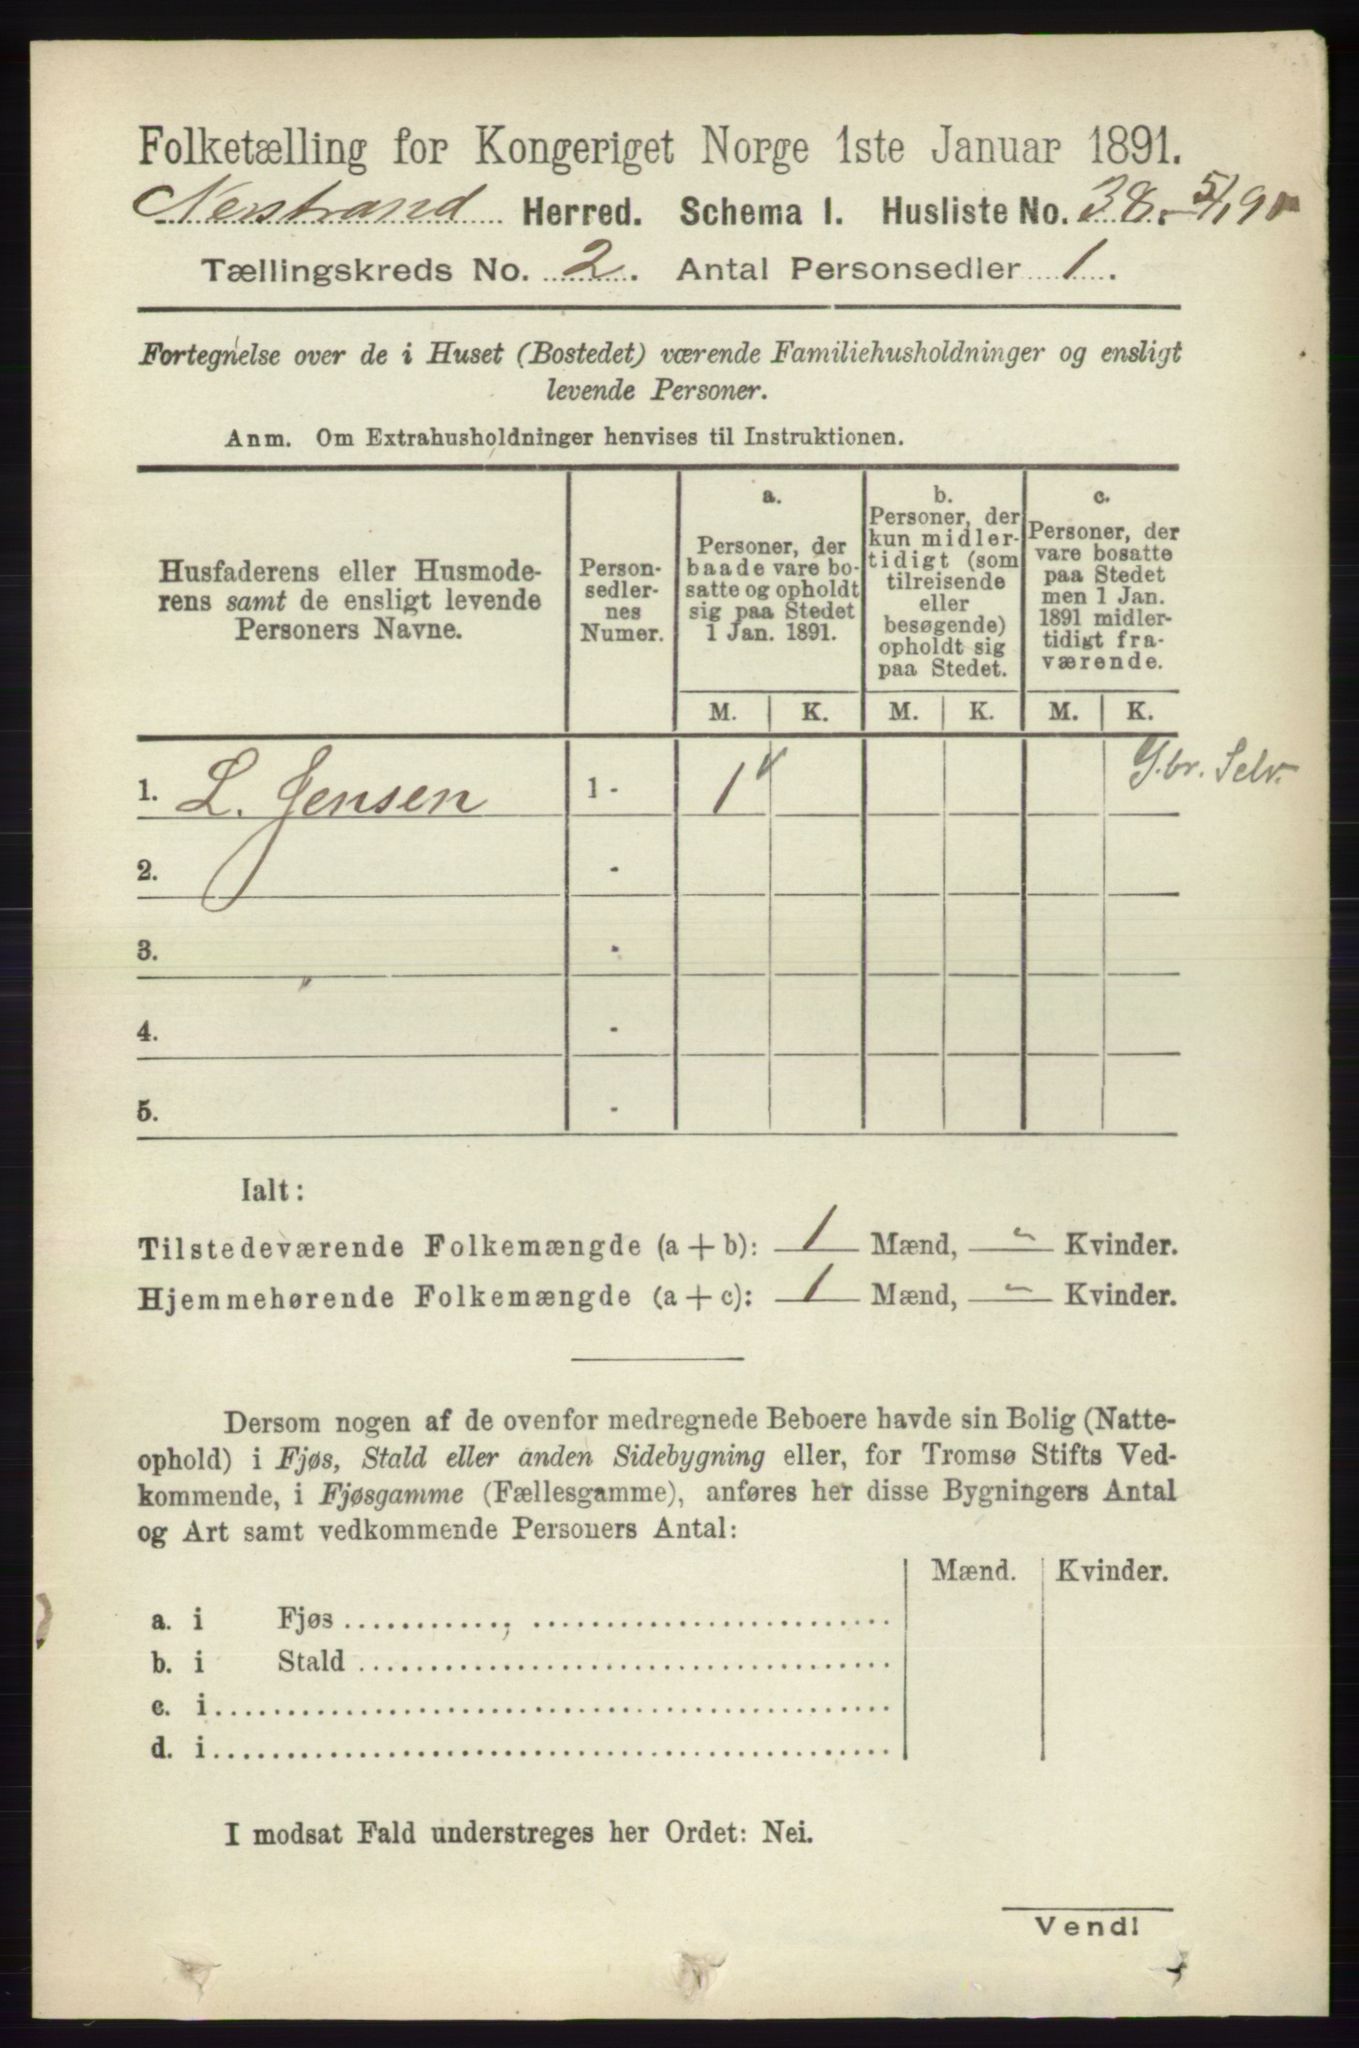 Folketælling for Kongeriget Norge 1ste Januar 1891.
Nerstrand Herred. Schema I. Husliste No. 38.
Tællingskreds No. 2. Antal Personsedler 1.
Fortegnelse over de i Huset (Bostedet) værende Familiehusholdninger og ensligt
levende Personer.
Anm. Om Extrahusholdninger henvises til Instruktionen.
Husfaderens eller Husmode-
rens samt de ensligt levende
Personers Navne.
Person-
sedler-
nes
Numer.
a.
Personer, der
baade vare bo-
satte og opholdt
sig paa Stedet
1 Jan. 1891.
b.
Personer, der
kun midler-
tidigt (som
tilreisende
eller
besøgende)
opholdt sig
paa Stedet.
c.
Personer, der
vare bosatte
paa Stedet
men 1 Jan.
1891 midler-
tidigt fra-
værende.
M. K. M. K. M. K.
1. L. Jensen 1 - 1 G.br. Selv.
2. -
3. -
4. -
5. -
Ialt:
Tilstedeværende Folkemængde (a + b): 1 Mænd, - Kvinder.
Hjemmehørende Folkemængde (a + c): 1 Mænd, - Kvinder.
Dersom nogen af de ovenfor medregnede Beboere havde sin Bolig (Natte-
ophold) i Fjøs, Stald eller anden Sidebygning eller, for Tromsø Stifts Ved-
kommende, i Fjøsgamme (Fællesgamme), anføres her disse Bygningers Antal
og Art samt vedkommende Personers Antal:
Mænd. Kvinder.
a. i Fjøs
b. i Stald
c. i
d. i
I modsat Fald understreges her Ordet: Nei.
Vend!